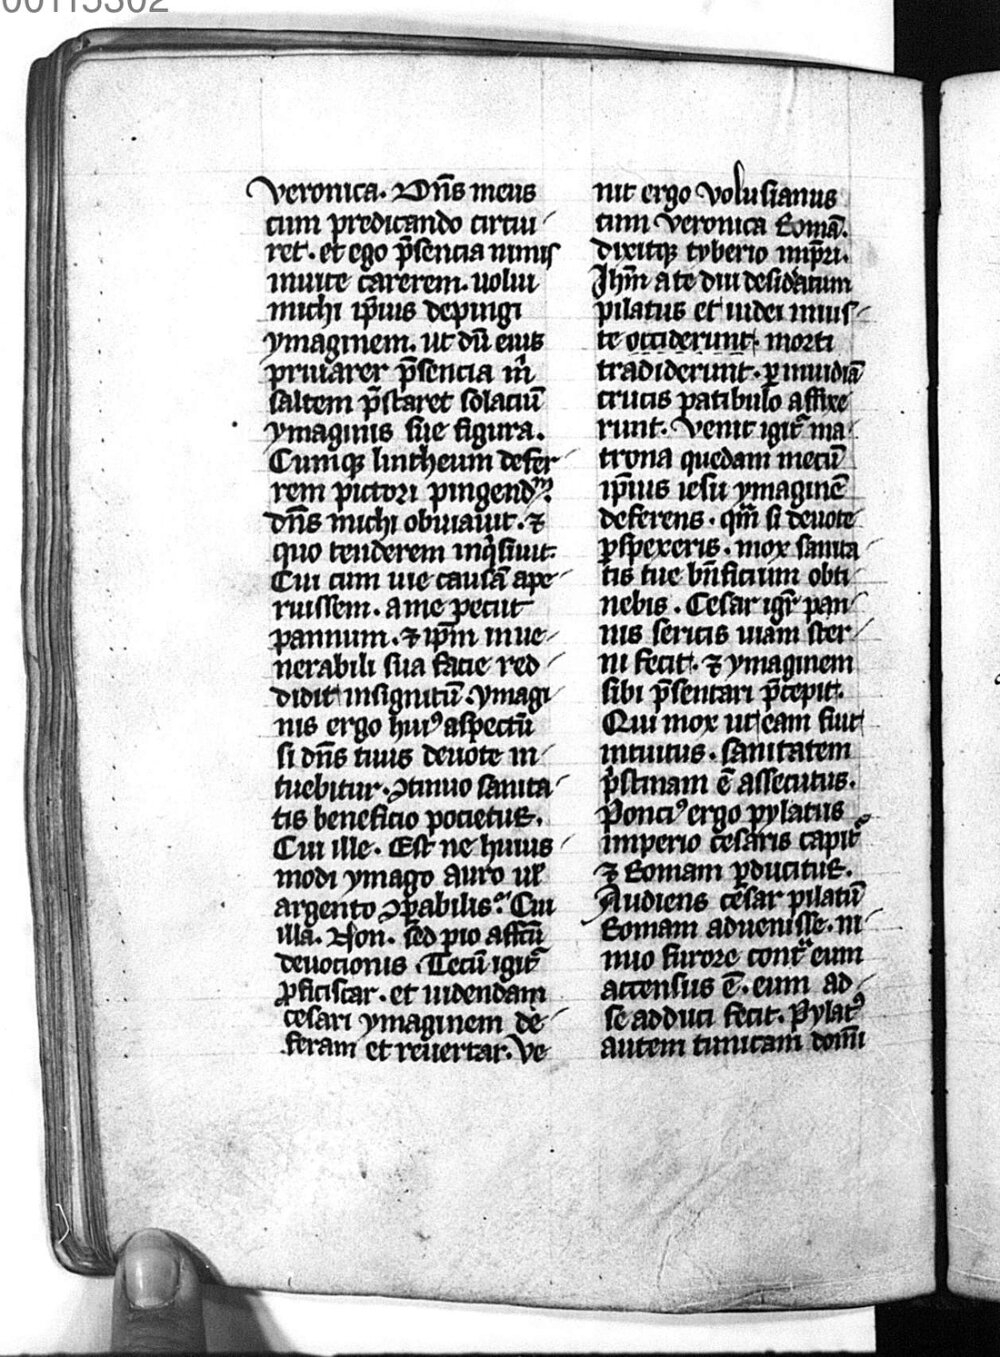 00115302
veronica. Dn̄s meus
cum predicando circui
ret. et ego p̄sencia nimis
inuite carerem. uolui
michi ip̄ius depingi
ymaginem. ut dū eius
priuarer p̄sencia m̄
saltem p̄staret solaciū
ymaginis sue figura.
Cumq; lintheum defer
rem pictori pingend
dn̄s michi obuiauit. ⁊
quo tenderem inq̇siuit.
Cui cum uie causā ape
ruissem. a me peciit
pannum. ⁊ ip̄m in ue
nerabili sua facie red
didit insignitū. ymagi
nis ergo huiꝰ aspectū
si dn̄s tuus deuote in
tuebitur. ↄtinuo sanita
tis beneficio pocietur.
Cui ille. Est ne huius
modi ymago auro ul̄
argento ↄparabilis. Cui
illa. Non. sed pio affcū
deuocionis. Tecū igit̄
ꝓficiscar. et uidendam
cesari ymaginem de
feram et reuertar. Ve
nit ergo volusianus
cum veronica Romā.
dixitq; tyberio imp̄ri.
Jhm̄ a te diu desideratum
pilatus et iudei inius
te occiderunt. morti
tradiderunt. ꝑ inuidiā
crucis patibulo affixe
runt. Venit igit̄ ma
trona quedam mecū
ip̄ius iesu ymaginē
deferens. qm̄ si deuote
ꝑspexeris. mox sanita
tis tue bn̄ficium obti
nebis. Cesar igr̄ pan
nis sericis uiam ster
ni fecit. ⁊ ymaginem
sibi p̄sentari p̄cepit.
Qui mox ut eam fuit
intuitus. sanitatem
pͥstinam ē assecutus.
Ponciꝰ ergo pylatus
imperio cesaris capit̄
⁊ Romam ꝑducitur.
Audiens cesar pilatū
Romam aduenisse. ni
mio furore contͣ eum
accensus ē. eum ad
se adduci fecit. Pylatꝰ
autem tunicam domī